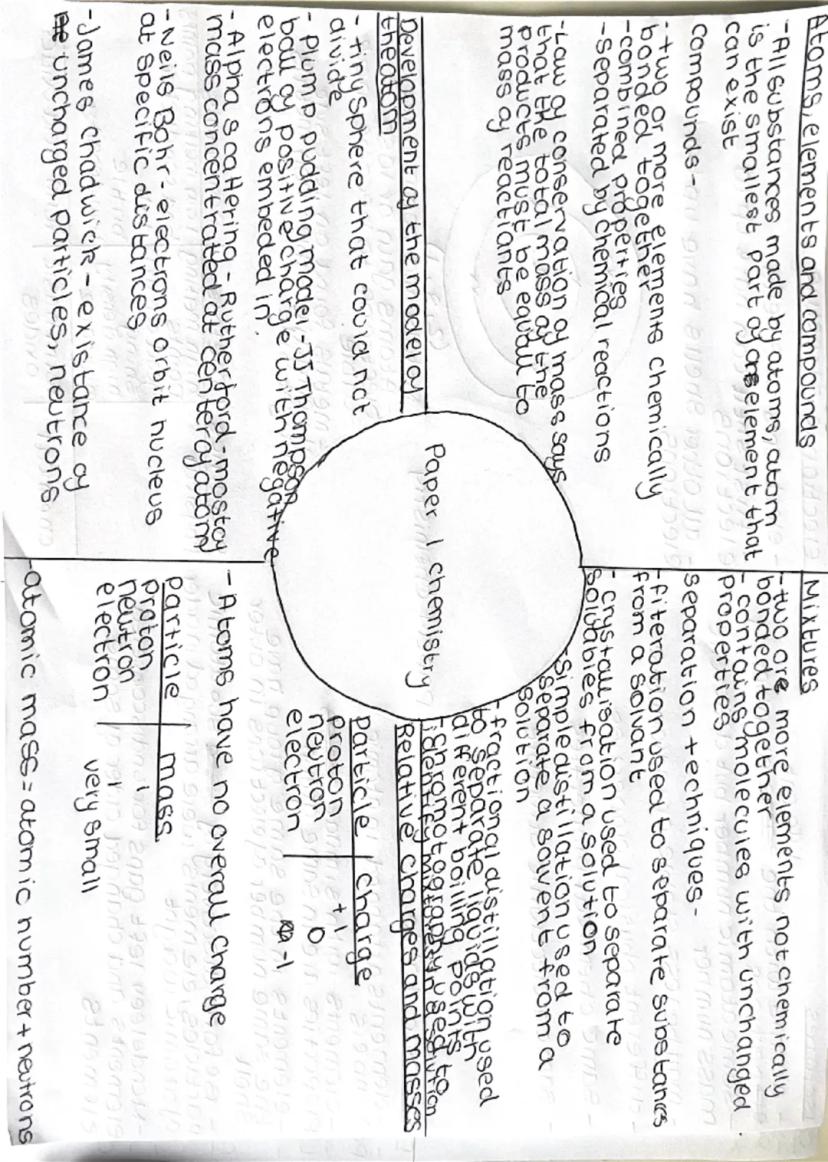 Atoms, elements and compounds
- All substances made by atoms, atom
is the smallest part of an element that
can exist
compounds -
- two or more elements chemically
bonded together
- combined properties
- separated by chemical reactions
- Law of conservation of mass says
that the total mass of the
products must be equall to
mass of reactants
Mixtures
- two are more elements not chemically
bonded together
- contains molecules with unchanged
properties
separation techniques -
- filteration used to separate substances
from a solvant
- crystallisation used to separate
solubles from a solution
- simple distillation used to
separate a solvent from a
solution
- fractional distillation used
to separate liquids with
different boilling points
- chromotography used to
identify
Paper 1 chemistry
Development of the model of
the atom
- tiny sphere that could not
divide
- Plump pudding model - JJ Thompson
ball of positive charge with negative
electrons embeded in.
- Alpha scattering - Rutherford - most of
mass concentrated at center of atom
- Neils Bohr - electrons orbit nucleus
at specific distances
- James chadwick - existance of
uncharged particles, neutrons
Relative charges and masses
Particle charge
proton +1
neutron 0
electron -1
- Atoms have no overall charge
Particle mass
proton 1
neutron 1
electron very small
- atomic mass = atomic number + neutrons